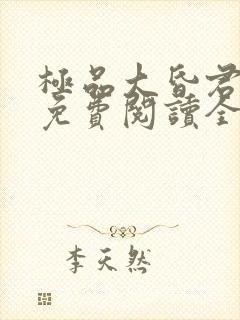 極品大昏君
免費閱讀全
李天然